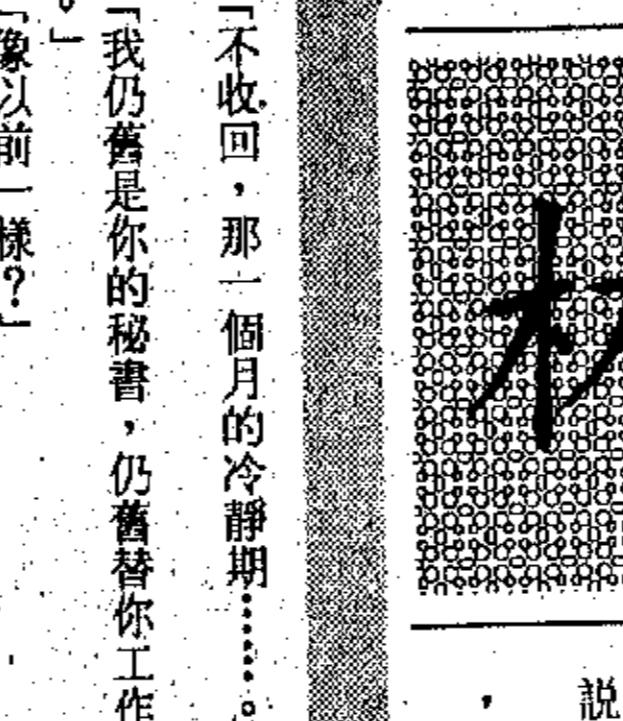 説
，
「不收回，那一個月的冷靜期……。
「我仍舊是你的秘書，仍舊替你工作
。」
「像以前一樣？」